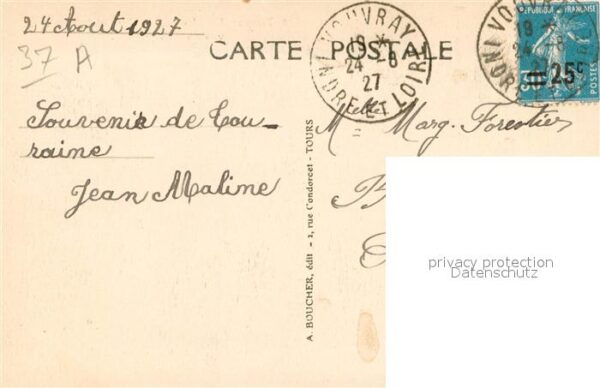 24 Aout 1927
37 A
CARTE POSTALE
VOUVRAY
19 *
24 -8
27
INDRE-ET-LOIRE
RÉPUBLIQUE FRANÇAISE
25c
POSTES
Souvenir de Tou-
raine
Jean Maline
Melle Marg. Forestier
A. BOUCHER, édit - 2, rue Condorcet - TOURS
privacy protection
Datenschutz